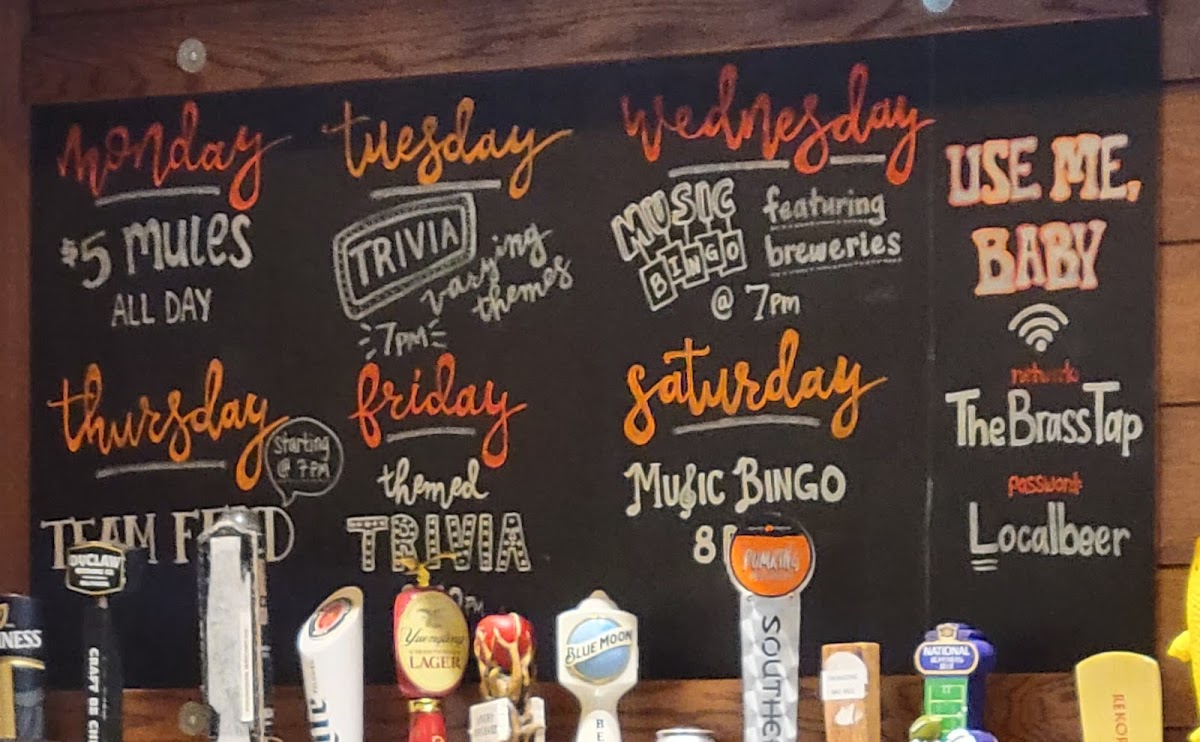 monday
$5 MULES
ALL DAY
tuesday
TRIVIA
varying
themes
7PM
wednesday
MUSIC
BINGO
featuring
breweries
@ 7pm
USE ME,
BABY
network
TheBrassTap
password
Localbeer
thursday
Starting
@ 7PM
TEAM
friday
themed
TRIVIA
saturday
MUSIC BINGO
8
DUCLAW
CRAFT
Yuengling
LAGER
BLUE MOON
PUMKING
SOUTHE
NATIONAL
REKOR